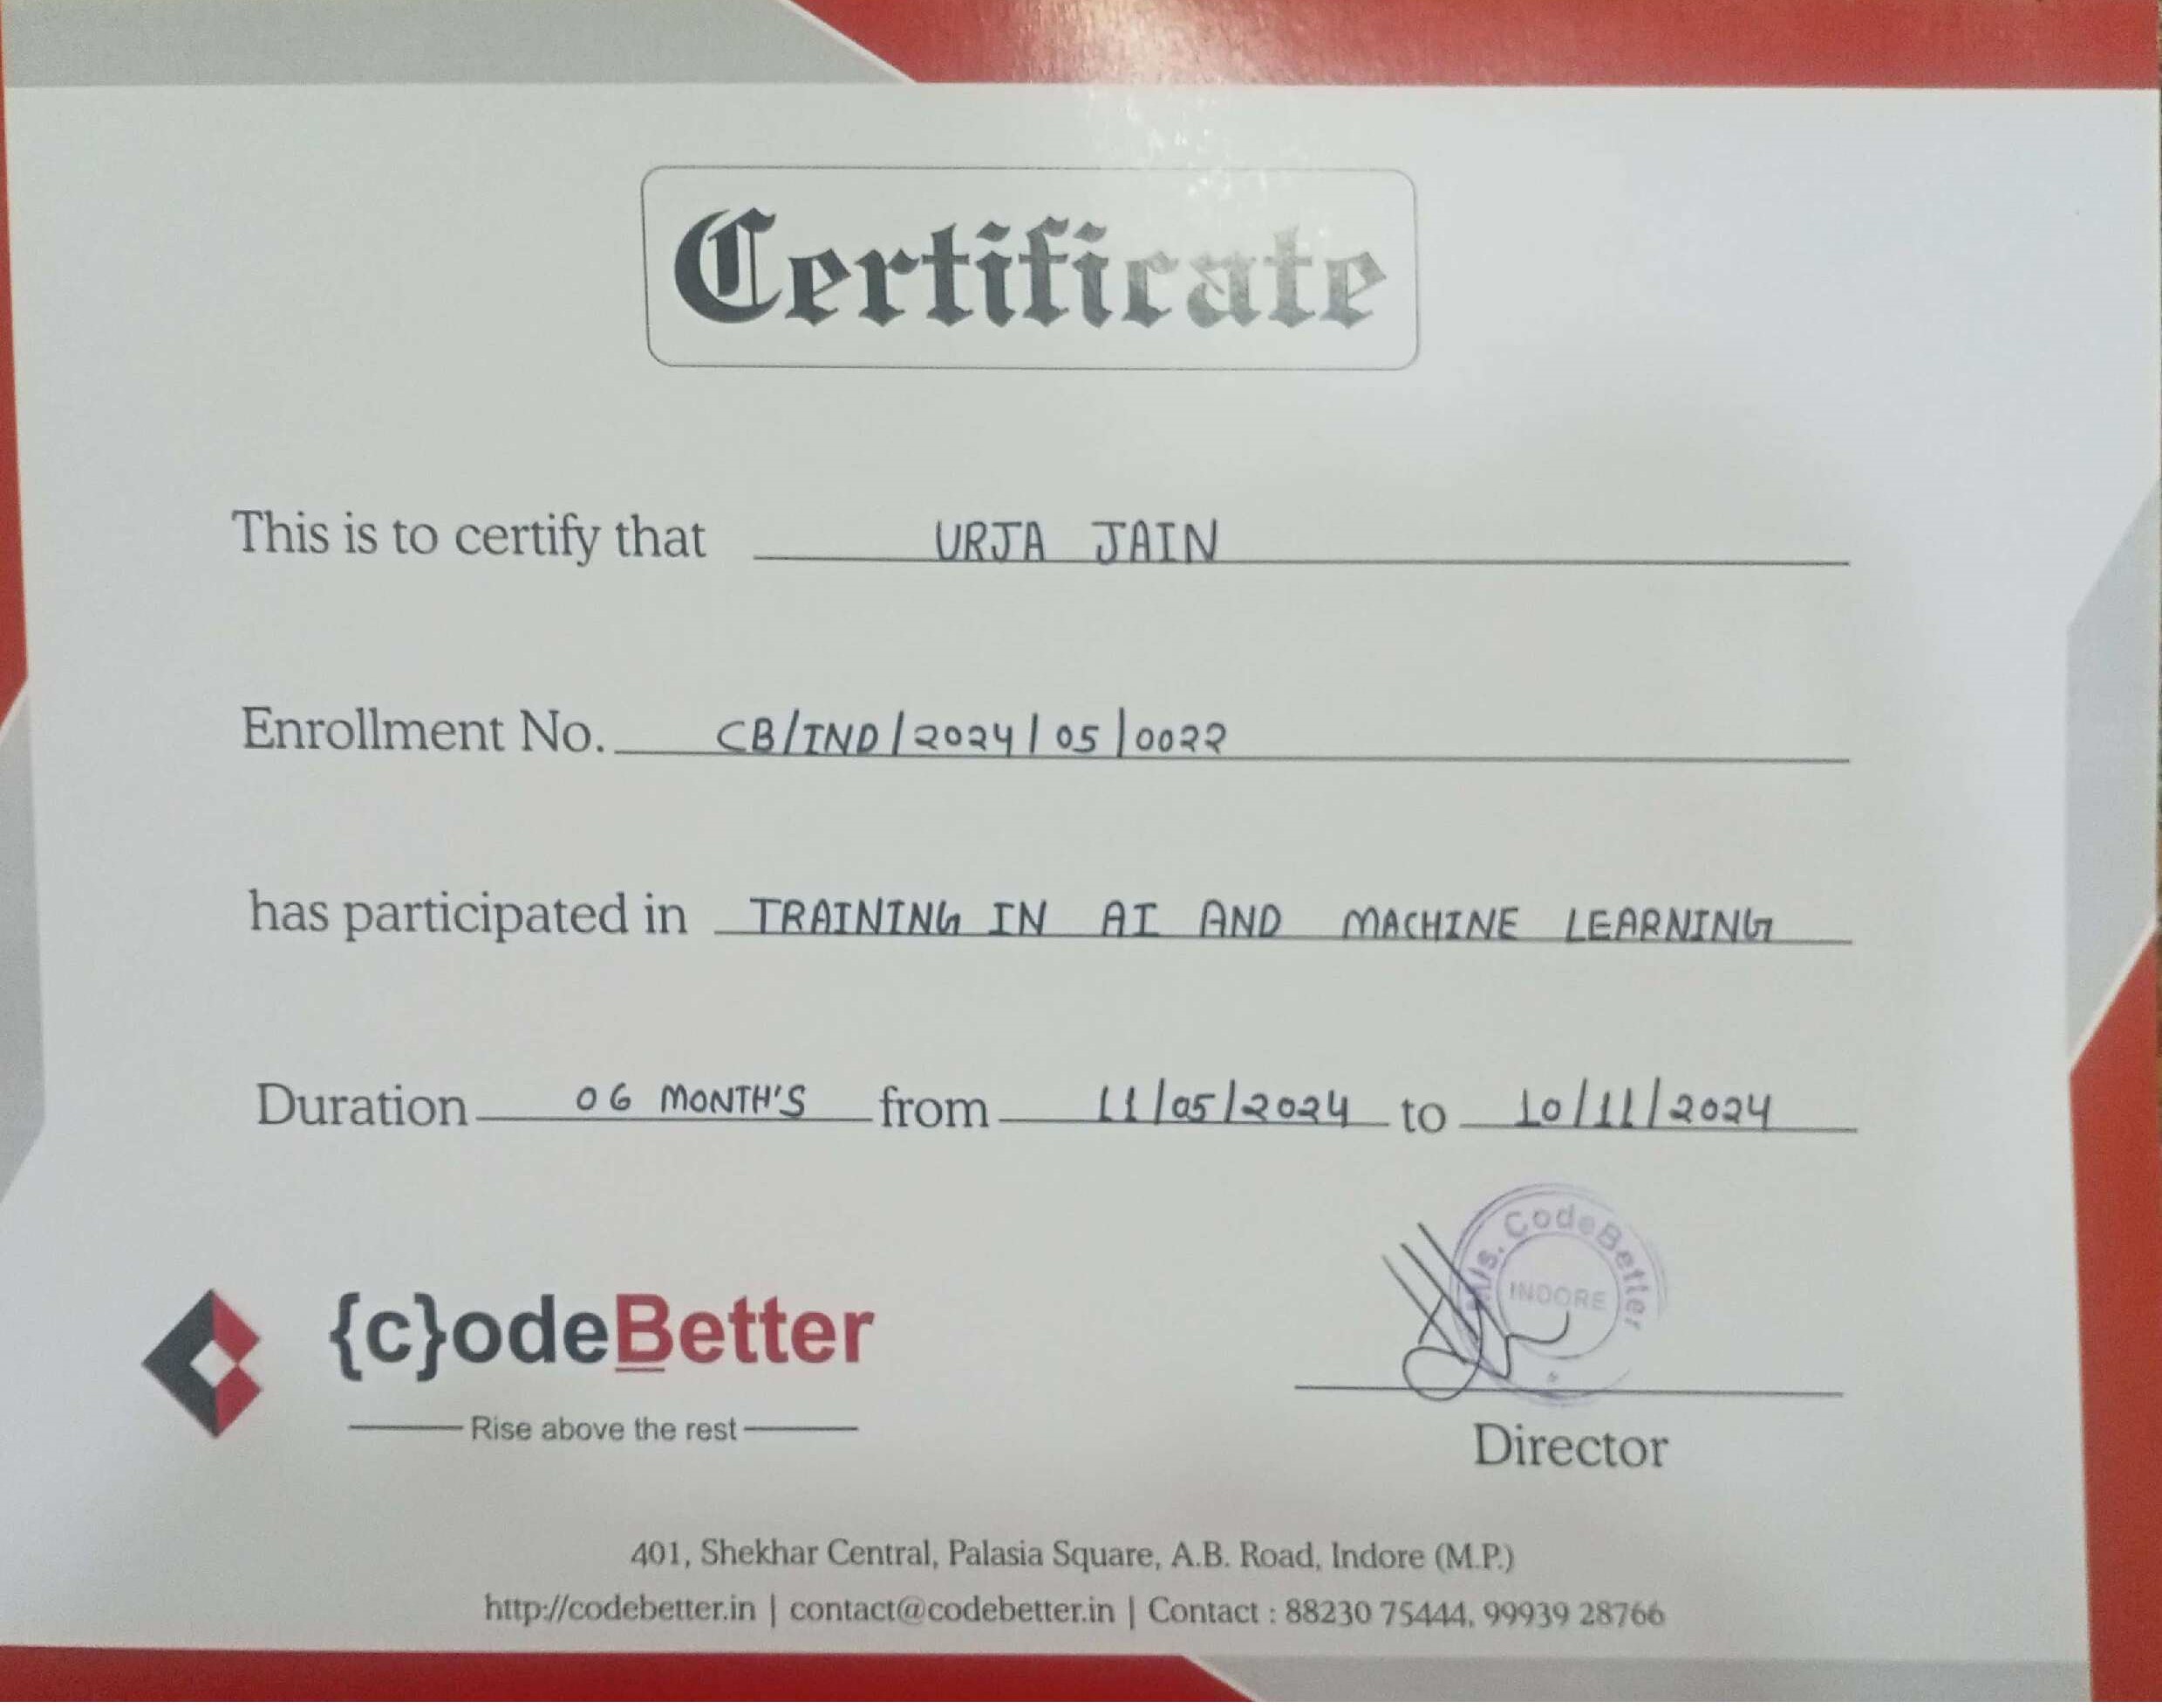 Certificate
This is to certify that URJA JAIN
Enrollment No. CB/IND/2024/05/0022
has participated in TRAINING IN AI AND MACHINE LEARNING
Duration 06 MONTH'S from 11/05/2024 to 10/11/2024
M/s. CodeBetter
INDORE
{c}odeBetter
Rise above the rest
Director
401, Shekhar Central, Palasia Square, A.B. Road, Indore (M.P.)
http://codebetter.in | contact@codebetter.in | Contact : 88230 75444, 99939 28766